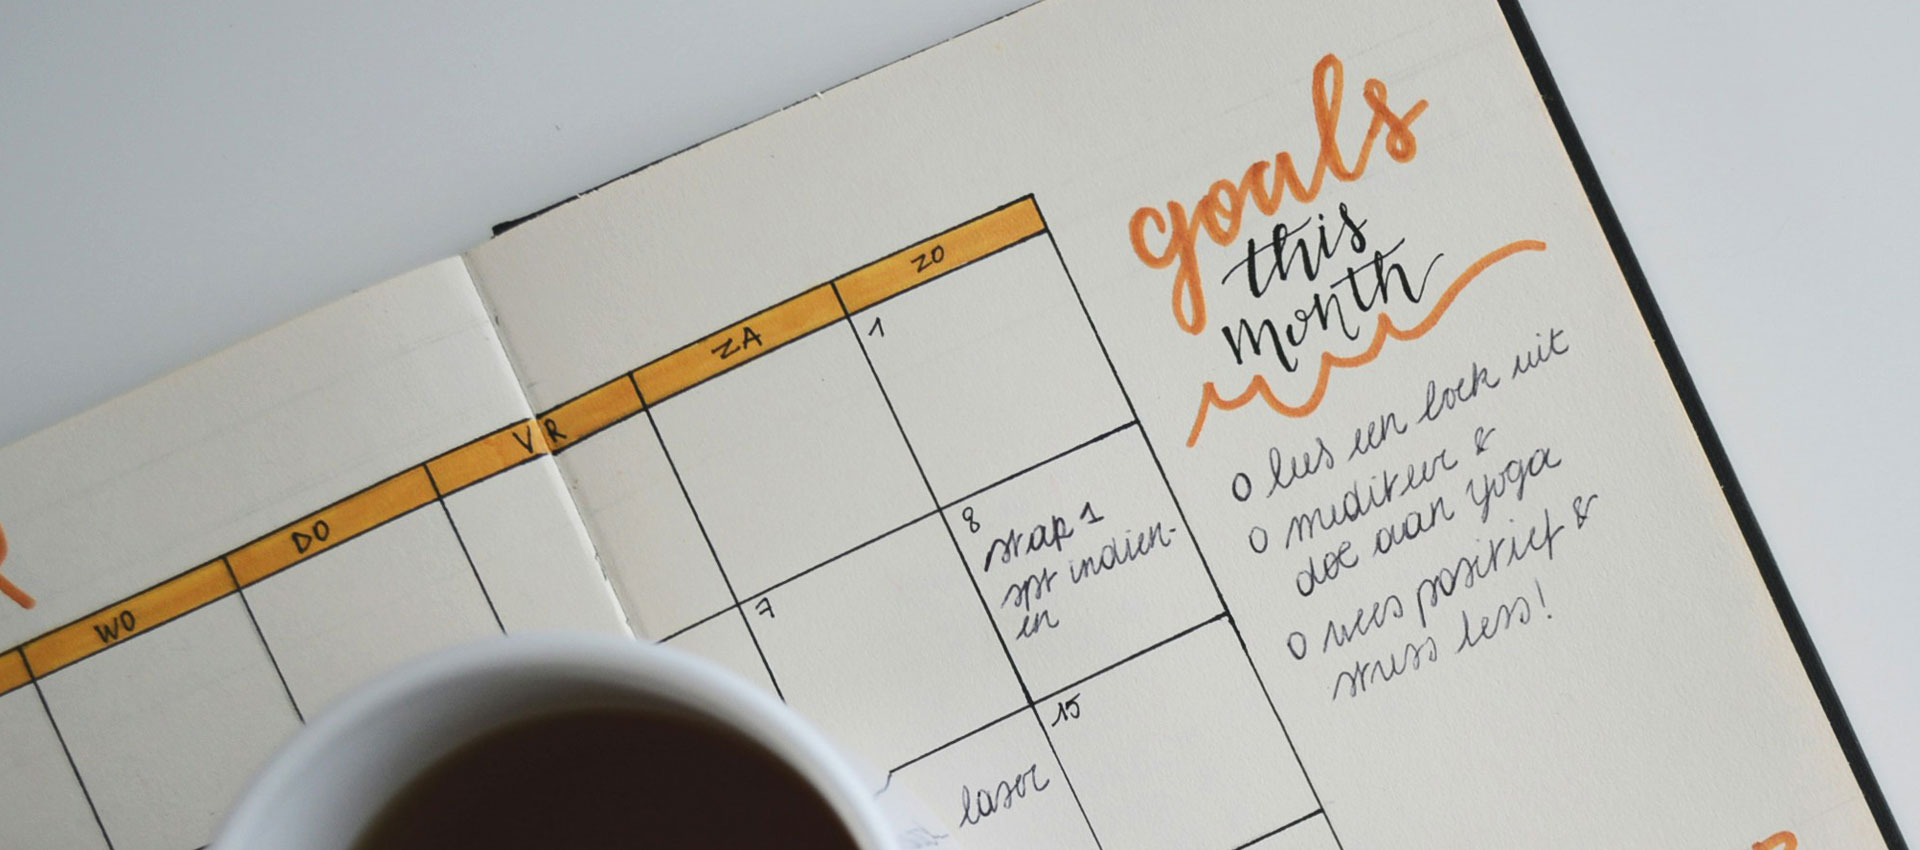 WO DO VR ZA ZO
1
7
8
stap 1
spt indien-
en
15
laser
goals
this
month
o lees een boek uit
o mediteer &
doe aan yoga
o wees positief &
stress less!
R